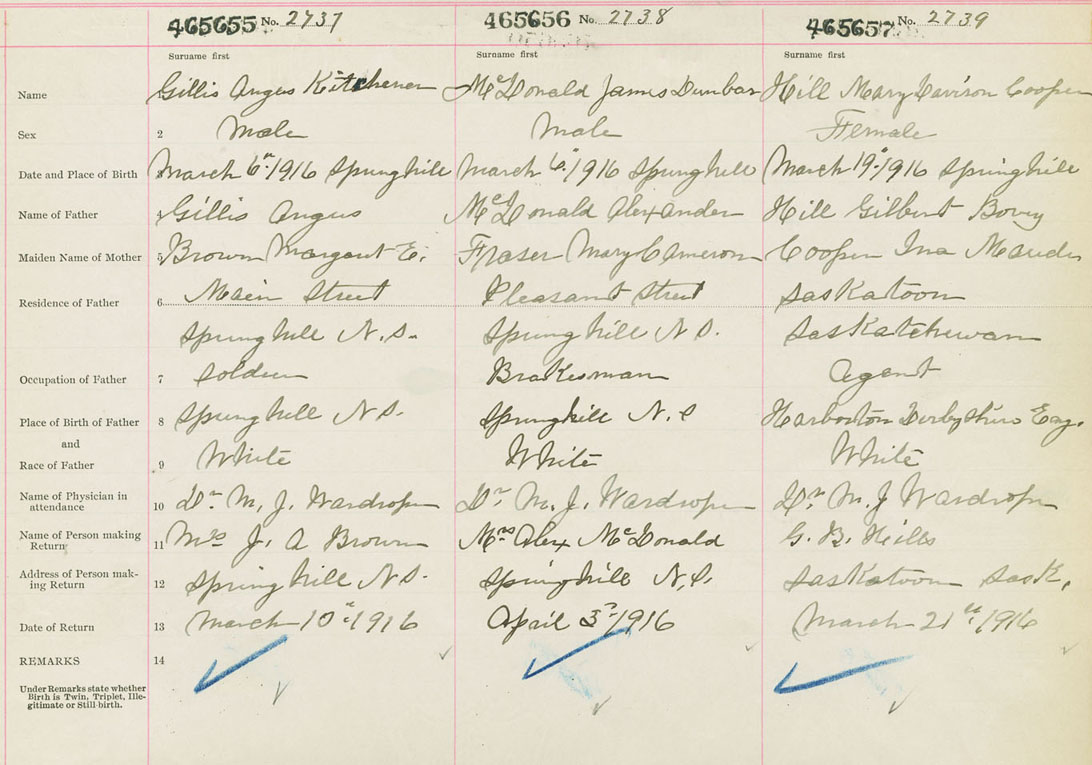 465655 No. 2737 465656 No. 2738 465657 No. 2739
Surname first Surname first Surname first
Name Gillis Angus Kitchener McDonald James Dunbar Hill Mary Davison Cooper
Sex 2 Male Male Female
Date and Place of Birth 3 March 6th 1916 Springhill March 6th 1916 Springhill March 19th 1916 Springhill
Name of Father 4 Gillis Angus McDonald Alexander Hill Gilbert Bovey
Maiden Name of Mother 5 Brown Margaret E. Fraser Mary Cameron Cooper Ina Maude
Residence of Father 6 Main Street Pleasant Street Saskatoon
Springhill N.S. Springhill N S. Saskatchewan
Occupation of Father 7 Soldier Brakesman Agent
Place of Birth of Father 8 Springhill N S. Springhill N.S Derbyshire Eng.
and
Race of Father 9 White White White
Name of Physician in
attendance 10 Dr. M. J. Wardrope Dr M. J. Wardrope Dr M. J Wardrope
Name of Person making
Return 11 Mrs J. A Brown Mrs Alex McDonald G. B. Hills
Address of Person mak-
ing Return 12 Springhill N S. Springhill N.S. Saskatoon Sask.
Date of Return 13 March 10th 1916 April 3rd 1916 March 21st 1916
REMARKS 14
Under Remarks state whether
Birth is Twin, Triplet, Ille-
gitimate or Still-birth.